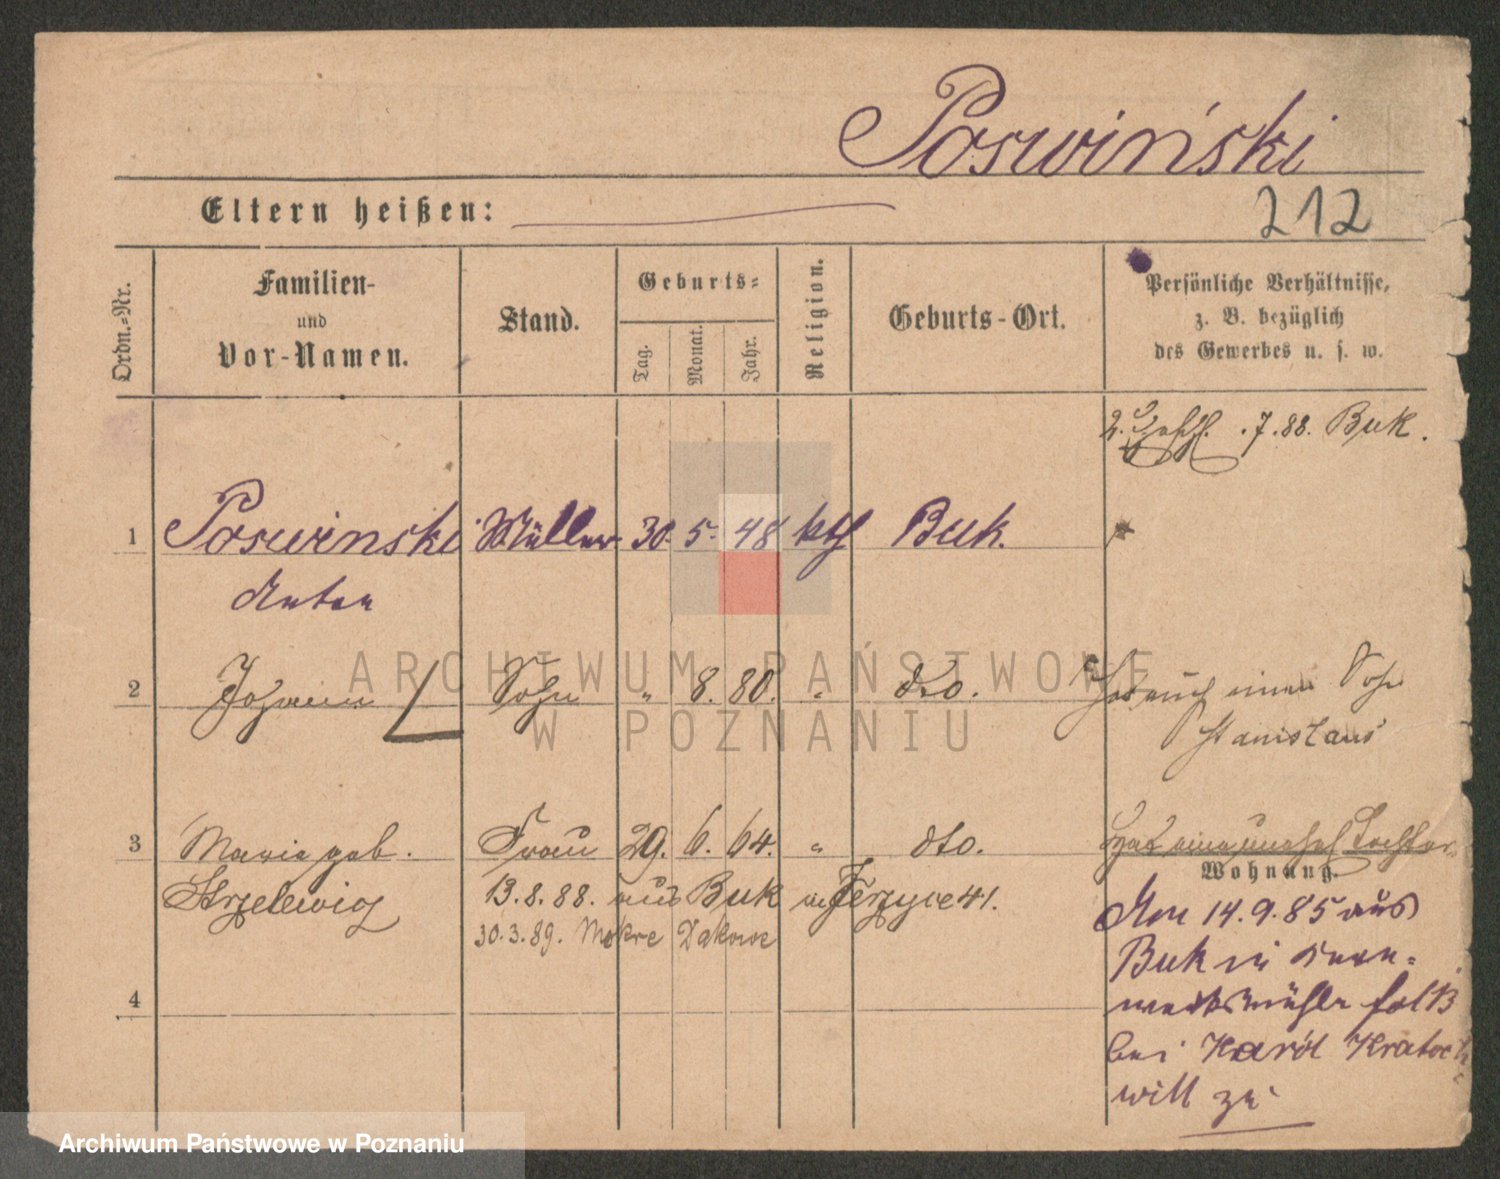 Poswiński
Eltern heißen:
212
Ordn.-Nr.
Familien-
und
Vor-Namen.
Stand.
Geburts-
Tag.
Monat.
Jahr.
Religion.
Geburts-Ort.
Persönliche Verhältnisse,
z. B. bezüglich
des Gewerbes u. s. w.
2. .7.88. Buk.
1 Poswinski Müller 30. 5. 48 kth Buk.
Anton
2 Johann Sohn " 8. 80. " dto.
Hat auch einen Sohn
Stanislaus
3 Maria geb. Frau 29. 6. 64. " dto.
Hat eine unehel Tochter
Strzelewicz
13.8.88. aus Buk n Jerzyce 41.
30.3.89. Mokre Dakowe
Wohnung.
Am 14.9.85 aus
Buk in
mühle fol 13
bei Karól Kratoch-
will zu
4
ARCHIWUM PAŃSTWOWE
W POZNANIU
Archiwum Państwowe w Poznaniu